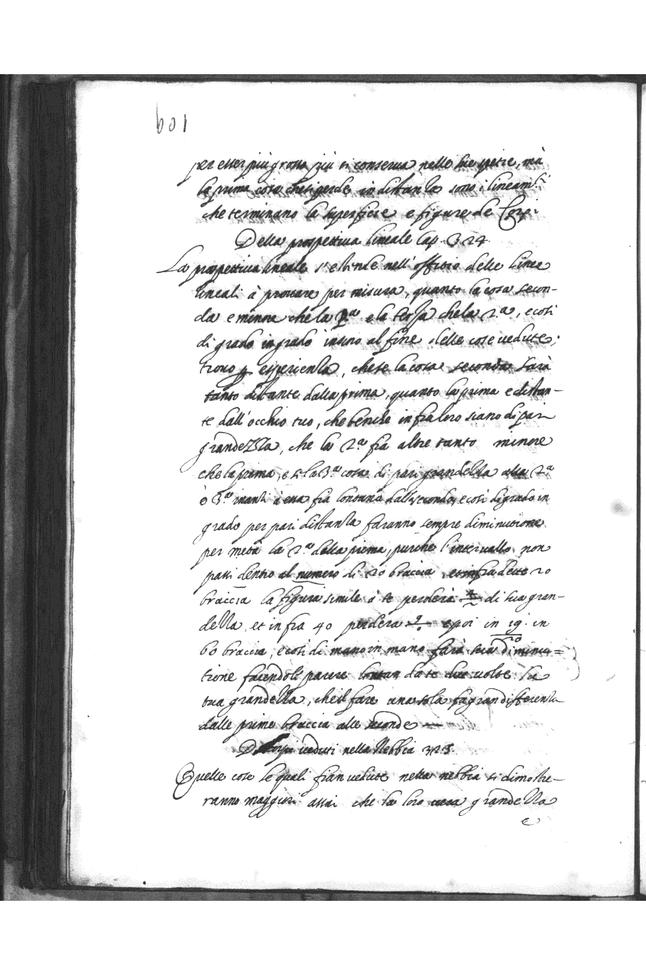 601
per esser più grossa più si conserva nelle sue spetie, mà
la prima cosa che si perde in distanza sono i lineam.ti
che terminano la superficie e figure de Corpi.
Della prospettiva lineale Cap. 324
La prospettiva lineale s'estende nell'offitio delle linee
lineali à provare per misura, quanto la cosa secon-
da e minore che la p.a e la terza che la 2.a, e cosi
di grado in grado insino al fine delle cose vedute;
trovo p esperienza, che se la cosa seconda sarà
tanto distante dalla prima, quanto la prima e distan-
te dall'occhio tuo, che benche infra loro siano di pari
grandezza, che la 2.a fia altre tanto minore
che la prima, e se la 3.a cosa di pari grandezza alla 2.a
e 3.a inanzi à essa fia lontana dalla seconda, e cosi di grado in
grado per pari distanza faranno sempre diminutione
per metà la 2.a dalla prima, purche l'intervallo non
passi dentro al numero di 20 braccia et infra dette 20
braccia la figura simile à te perderà di sua gran-
dezza et in fra 40 perderà e poi in 19. in
60 braccia, e cosi di mano in mano farà sua diminu=
tione facendoti parere lontan da te due volte la
tua grandezza, che il fare una sola fa gran differenza
dalle prime braccia alle seconde
veduti nella Nebbia 325
Quelle cose le quali fian vedute nella nebbia si dimostre-
ranno maggiori assai che la loro vera grandezza
e